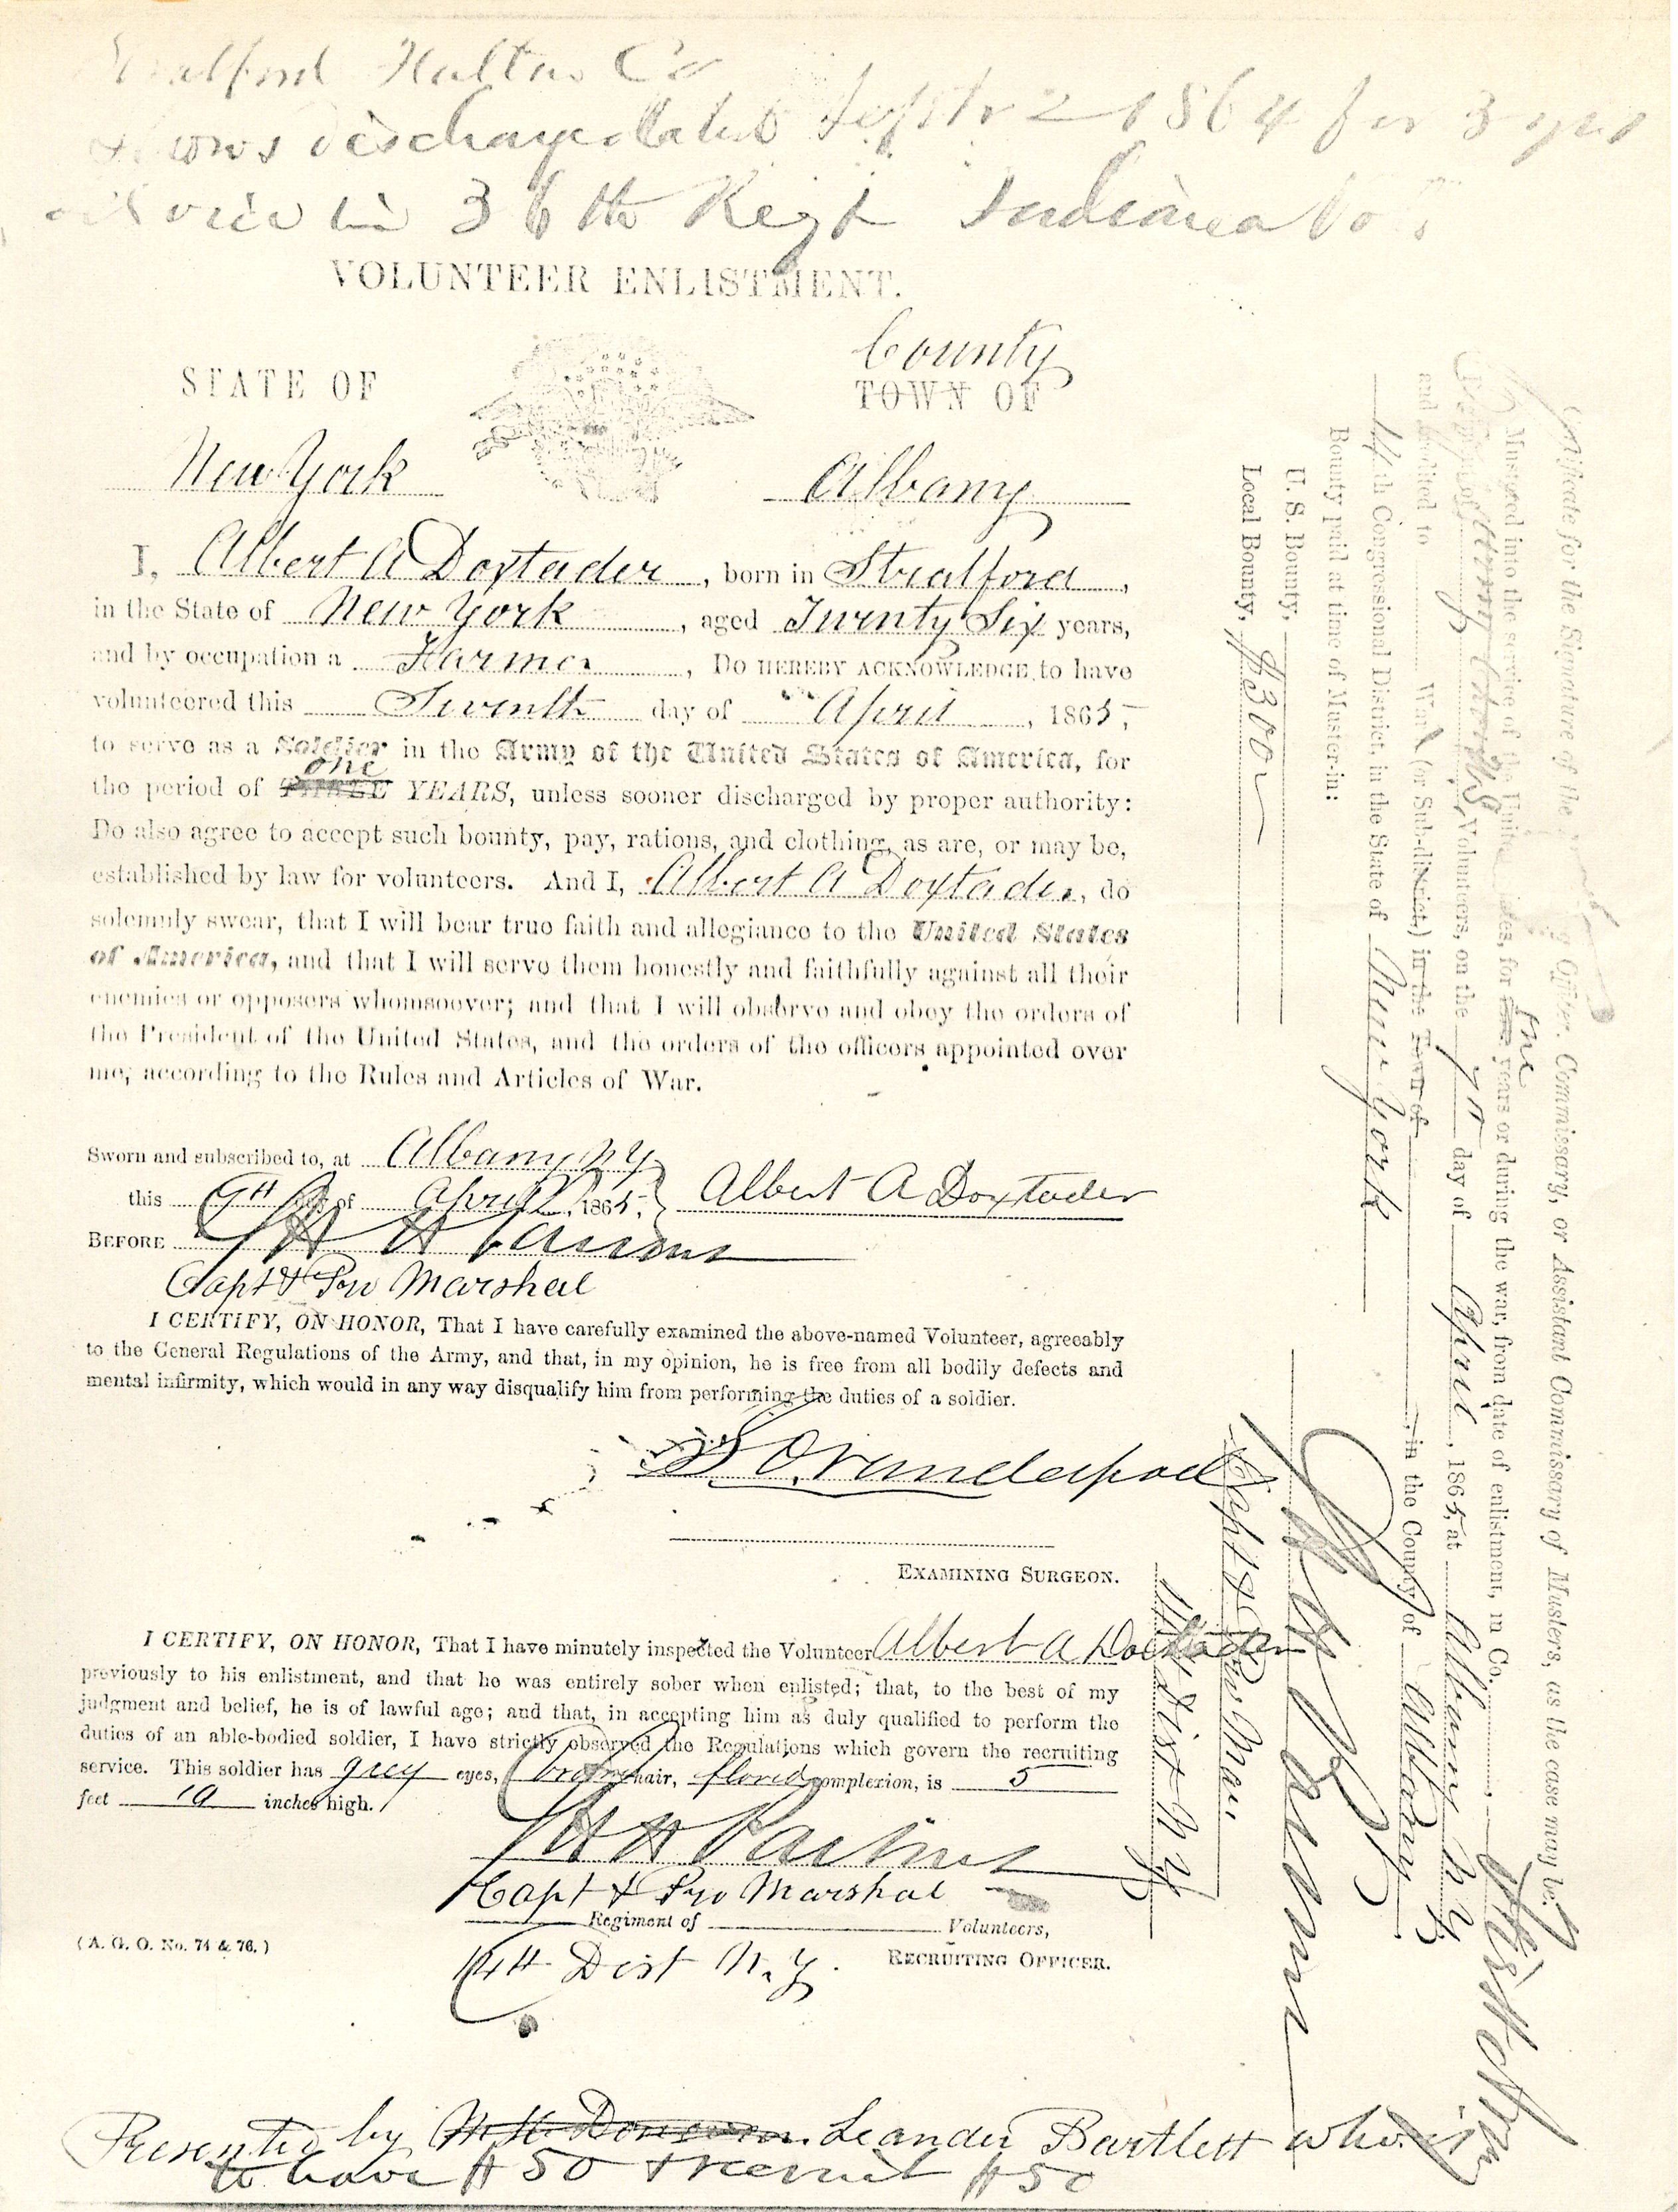 Stratford Fulton Co
Shows discharge dated Septr 2 1864 for 3 yrs
service in 36th Regt Indiana Vo
VOLUNTEER ENLISTMENT.
County
STATE OF TOWN OF
New York Albany
I, Albert A Doxtader, born in Stratford,
in the State of New York, aged Twenty Six years,
and by occupation a Farmer, DO HEREBY ACKNOWLEDGE to have
volunteered this Seventh day of April, 1865,
to serve as a Soldier in the Army of the United States of America, for
one
the period of THREE YEARS, unless sooner discharged by proper authority:
Do also agree to accept such bounty, pay, rations, and clothing, as are, or may be,
established by law for volunteers. And I, Albert A Doxtader, do
solemnly swear, that I will bear true faith and allegiance to the United States
of America, and that I will serve them honestly and faithfully against all their
enemies or opposers whomsoever; and that I will observe and obey the orders of
the President of the United States, and the orders of the officers appointed over
me, according to the Rules and Articles of War.
Sworn and subscribed to, at Albany NY
this 7th day of April, 1865, Albert A Doxtader
BEFORE
Capt & Pro Marshal
I CERTIFY, ON HONOR, That I have carefully examined the above-named Volunteer, agreeably
to the General Regulations of the Army, and that, in my opinion, he is free from all bodily defects and
mental infirmity, which would in any way disqualify him from performing the duties of a soldier.
Vanderpoel
EXAMINING SURGEON.
I CERTIFY, ON HONOR, That I have minutely inspected the Volunteer Albert A Doxtader
previously to his enlistment, and that he was entirely sober when enlisted; that, to the best of my
judgment and belief, he is of lawful age; and that, in accepting him as duly qualified to perform the
duties of an able-bodied soldier, I have strictly observed the Regulations which govern the recruiting
service. This soldier has grey eyes, brown hair, florid complexion, is 5
feet 10 inches high.
Capt & Pro Marshal
Regiment of Volunteers,
14th Dist N.Y. RECRUITING OFFICER.
(A. G. O. No. 74 & 76.)
Presented by M H Donovan. Leander Bartlett who is
to have $50 & recruit $50
Certificate for the Signature of the Mustering Officer, Commissary, or Assistant Commissary of Musters, as the case may be.
one
Mustered into the service of the United States, for three years or during the war, from date of enlistment, in Co.
Volunteers, on the 7th day of April, 1865, at Albany N Y
and credited to Ward (or Sub-district) in the Town of , in the County of Albany
14th Congressional District, in the State of New York
Bounty paid at time of Muster-in:
U. S. Bounty,
Local Bounty, $300
Capt & Pro Mar.
14th Dist N Y